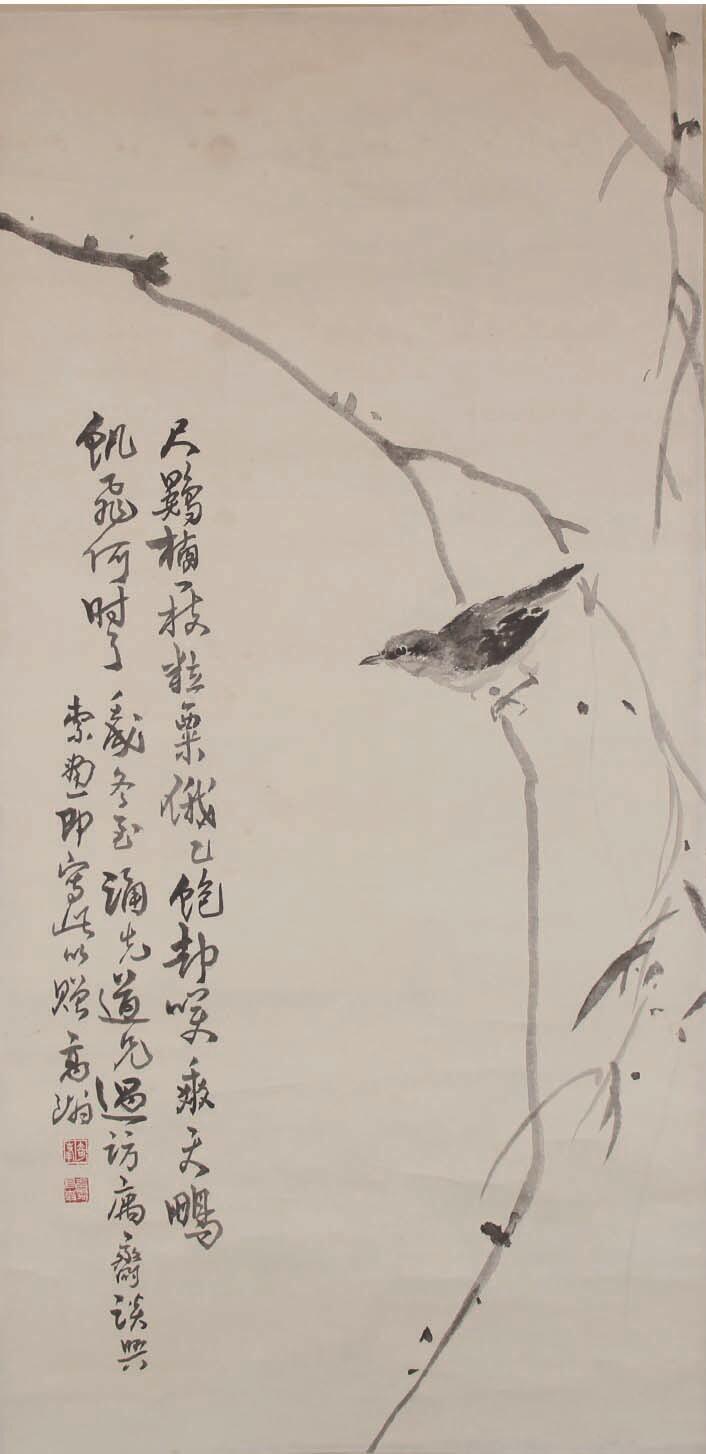 尺鷃栖一枝粒粟俄已飽却笑垂天鵬
飢飛何時了 歲冬至誦先道兄過訪寓齋談
索畫即寫此以贈 高